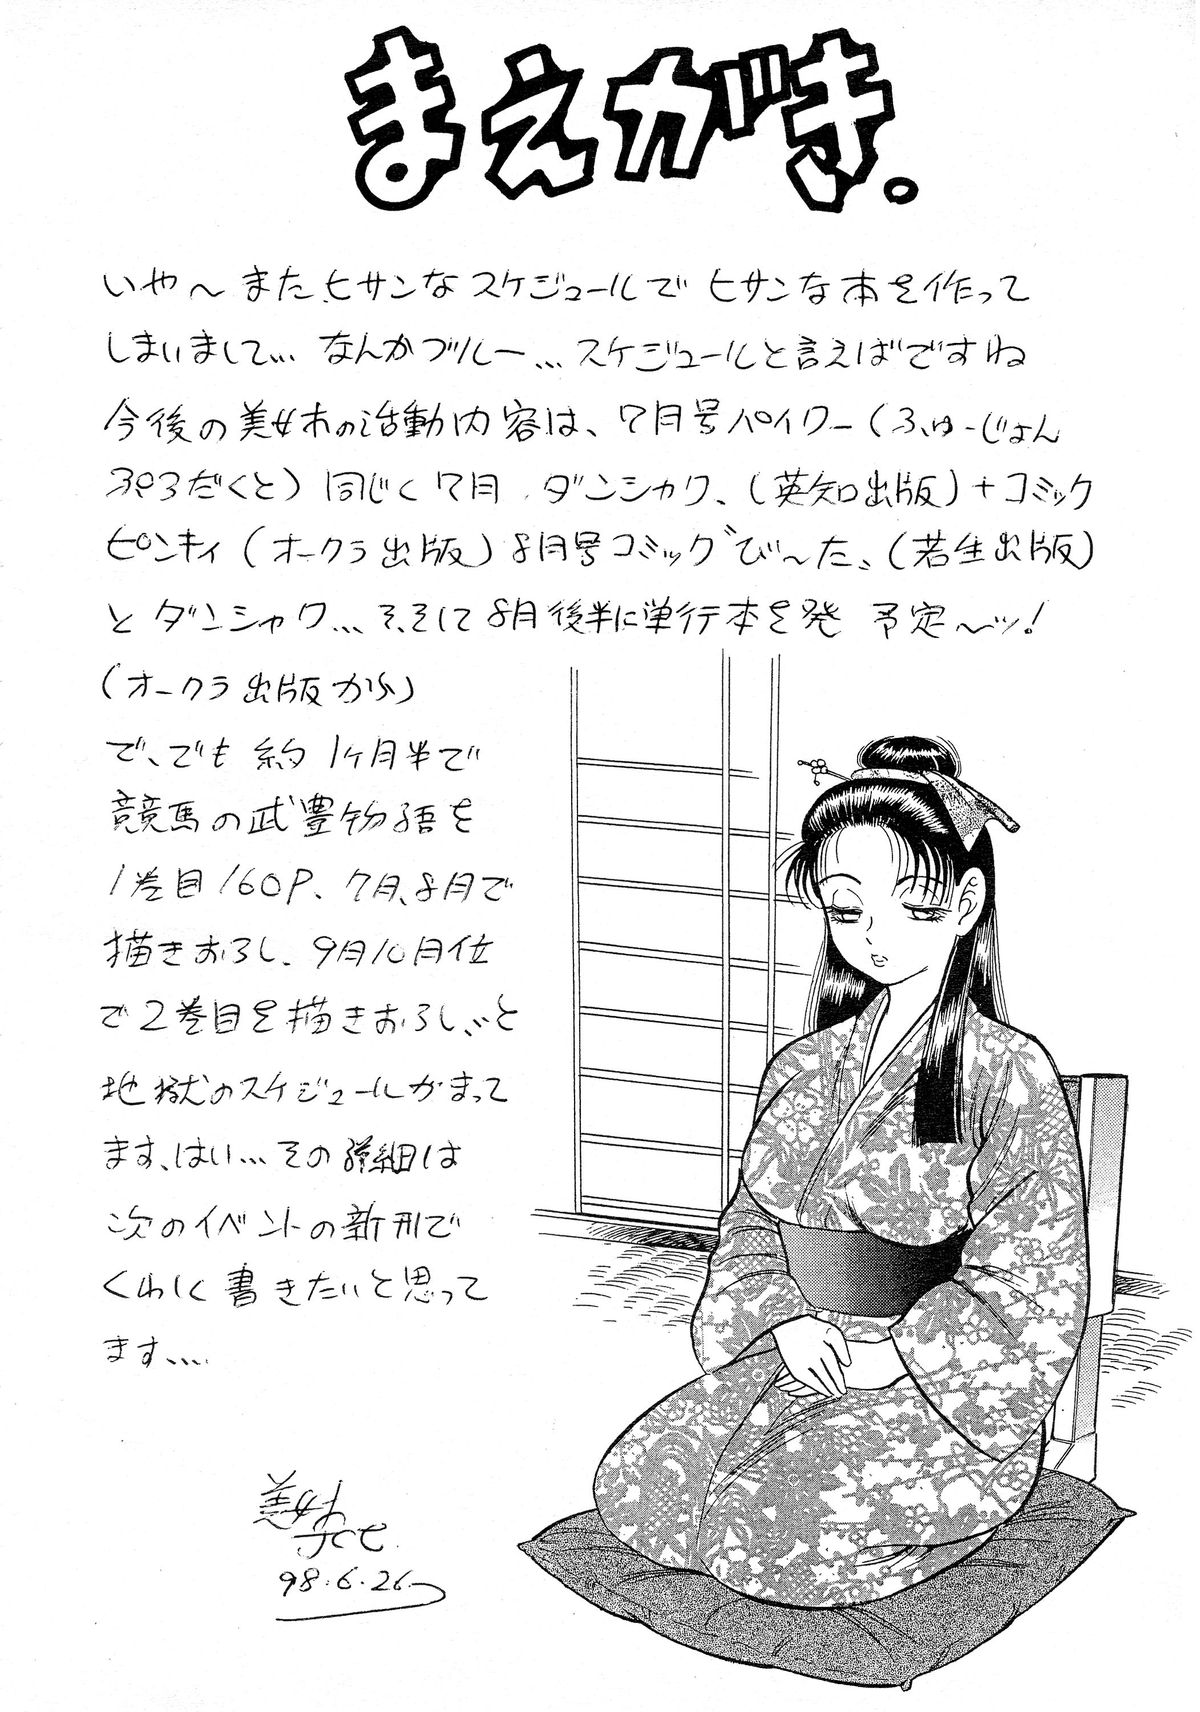 まえがき。
いや〜またヒサンなスケジュールでヒサンな本を作って
しまいまして… なんかブルー… スケジュールと言えばですね
今後の美女木の活動内容は、7月号パイワー(ふゅーじょん
ぷろだくと)同じく7月 ダンシャク、(英知出版)+コミック
ピンキィ(オークラ出版)8月号コミックび〜た、(若生出版)
とダンシャク… そ、そして8月後半に単行本を発 予定〜ッ!
(オークラ出版から)
で、でも 約1ヶ月半で
競馬の武豊物語を
1巻目160P、7月、8月で
描きおろし、9月10月位
で2巻目を描きおろし、と
地獄のスケジュールがまって
ます、はい… その詳細は
次のイベントの新刊で
くわしく書きたいと思って
ます…
美女木
98.6.26